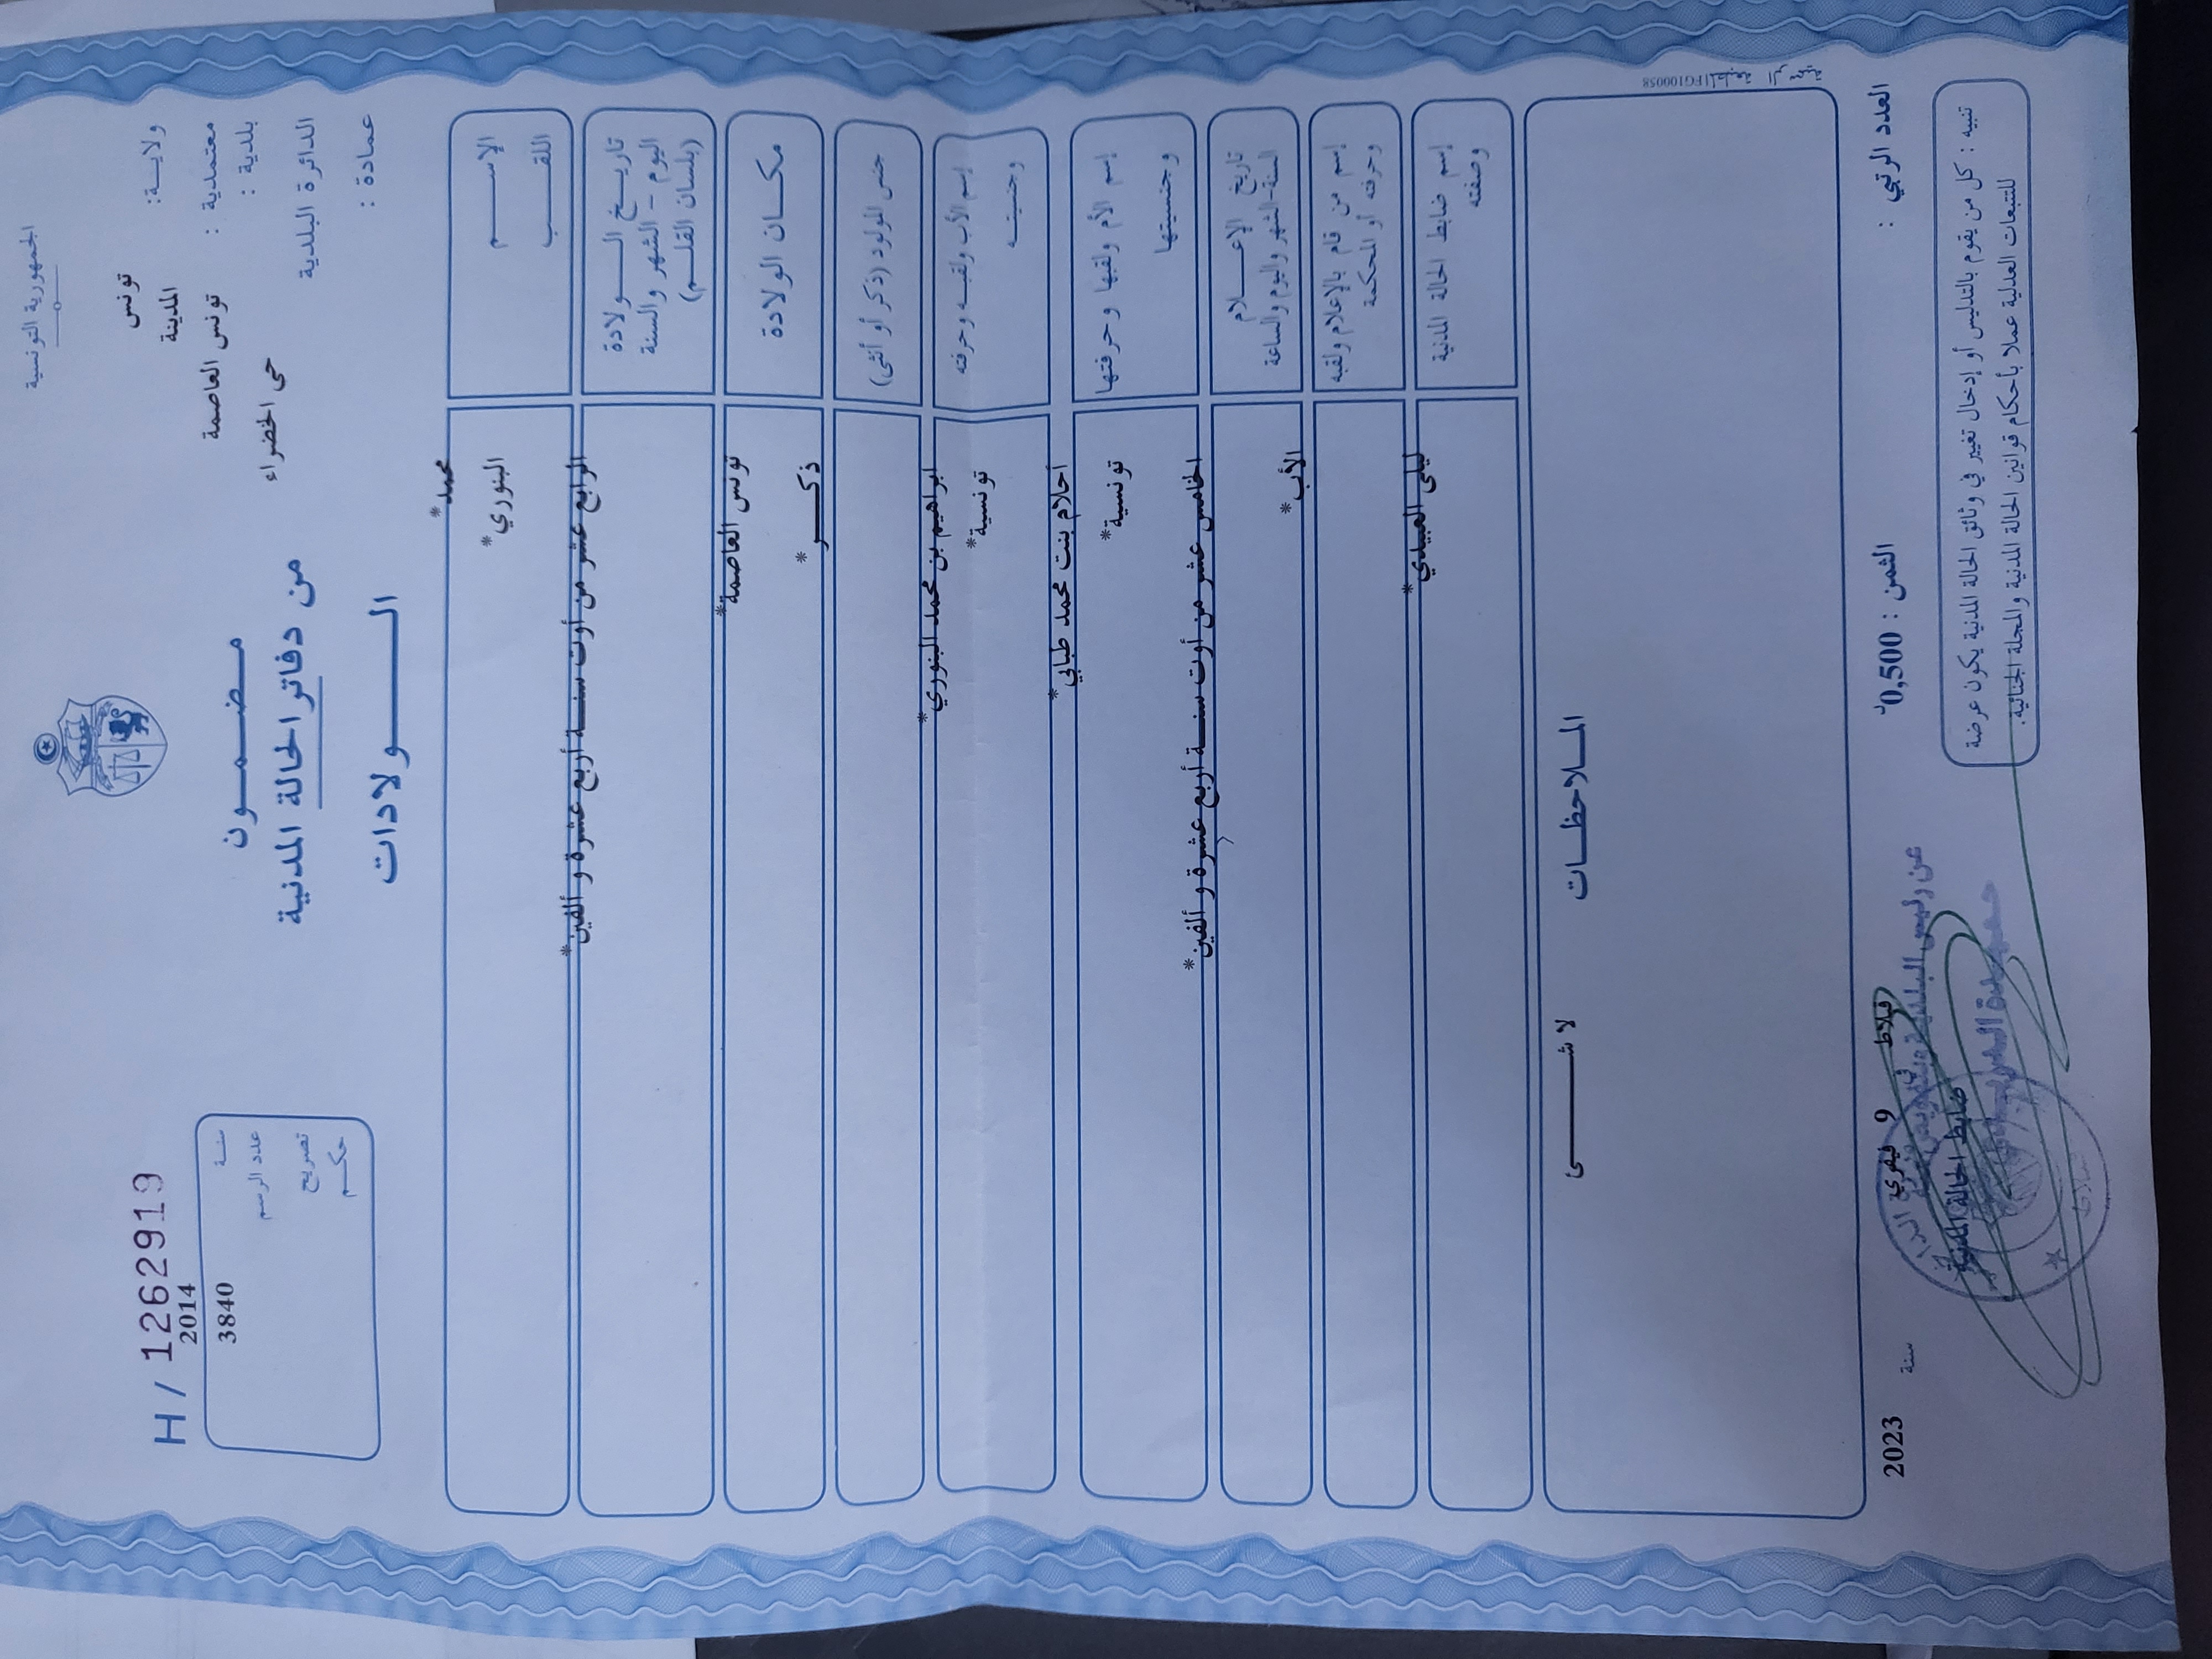 الجمهورية التونسية
H / 1262919
ولاية: تونس
معتمدية : المدينة
بلدية : تونس العاصمة
الدائرة البلدية حى الخضراء
عمادة :
مضمـــون
من دفاتر الحالة المدنية
الـــولادات
سنة 2014
عدد الرسم 3840
تصريح
حكم
الإســـم
اللقـــب
محمد*
البنوري*
تاريخ الـــولادة
اليوم – الشهر والسنة
(بلسان القلم)
الرابع عشر من أوت سنة أربع عشرة و ألفين*
مكـــان الولادة
تونس العاصمة*
جنس المولود (ذكر أو أنثى)
ذكـــر*
إسم الأب ولقبه وحرفته
وجنسيته
ابراهيم بن محمد البنوري*
تونسية*
إسم الأم ولقبها وحرفتها
وجنسيتها
أحلام بنت محمد طبابي*
تونسية*
تاريخ الإعـــلام
السنة-الشهر واليوم والساعة
الخامس عشر من أوت سنة أربع عشرة و ألفين*
إسم من قام بالإعلام ولقبه
وحرفته أو المحكمة
الأب*
إسم ضابط الحالة المدنية
وصفته
ليلى العبيدي*
الملاحظـــات
لا شـــئ
المطبعة الرسمية FG100058
العدد الرتبي :
الثمن : 0,500د
في 9 فيفري سنة 2023
ضابط الحالة المدنية
عن رئيس البلدية وبتفويض منه
تنبيه : كل من يقوم بالتدليس أو إدخال تغيير في وثائق الحالة المدنية يكون عرضة
للتتبعات العدلية عملا بأحكام قوانين الحالة المدنية والمجلة الجنائية.